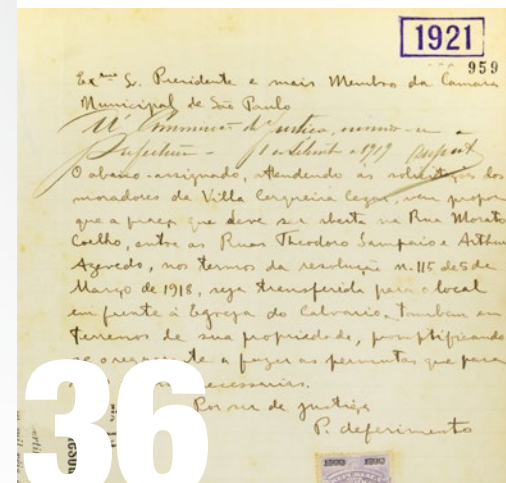 1921
959
Exmo Sr. Presidente e mais Membro da Camara
Municipal de São Paulo
Á Commissão de Justiça,
Prefeitura - 1 a Setemb. 1919
O abaixo-assignado, attendendo ás solicitações dos
moradores da Villa Cerqueira Cezar, vem propor
que a praça que deve ser aberta na Rua Morato
Coelho, entre as Ruas Theodoro Sampaio e Arthur
Azevedo, nos termos da resolução n. 115 de 5 de
Março de 1918, seja transferida para o local
em frente á Egreja do Calvario, tambem em
terrenos de sua propriedade, promptificando
se o requerente a fazer as permutas que para
necessarias.
Por ser de justiça
P. deferimento
36